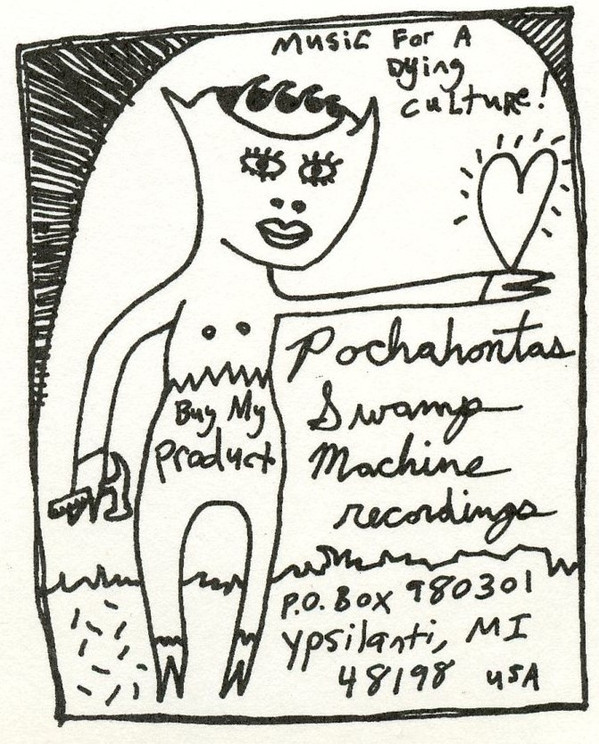 Music For A
Dying
culture!
Buy My
Product
Pochahontas
Swamp
Machine
recordings
P.O. Box 980301
Ypsilanti, MI
48198 USA